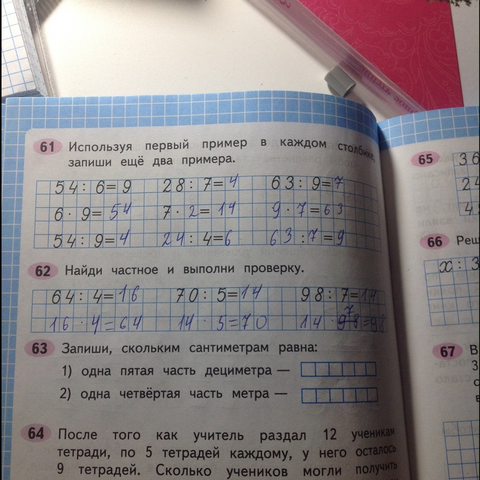 61 Используя первый пример в каждом столбике,
запиши ещё два примера.
54 : 6 = 9 28 : 7 = 4 63 : 9 = 7
6 · 9 = 54 7 · 2 = 14 9 · 7 = 63
54 : 9 = 4 24 : 4 = 6 63 : 7 = 9
62 Найди частное и выполни проверку.
64 : 4 = 16 70 : 5 = 14 98 : 7 = 14
16 · 4 = 64 14 · 5 = 70 14 · 7 = 98
63 Запиши, скольким сантиметрам равна:
1) одна пятая часть дециметра —
2) одна четвёртая часть метра —
64 После того как учитель раздал 12 ученикам
тетради, по 5 тетрадей каждому, у него осталось
9 тетрадей. Сколько учеников могли получить
65 36
24
4
66 Реш
x : 3
67 В
3